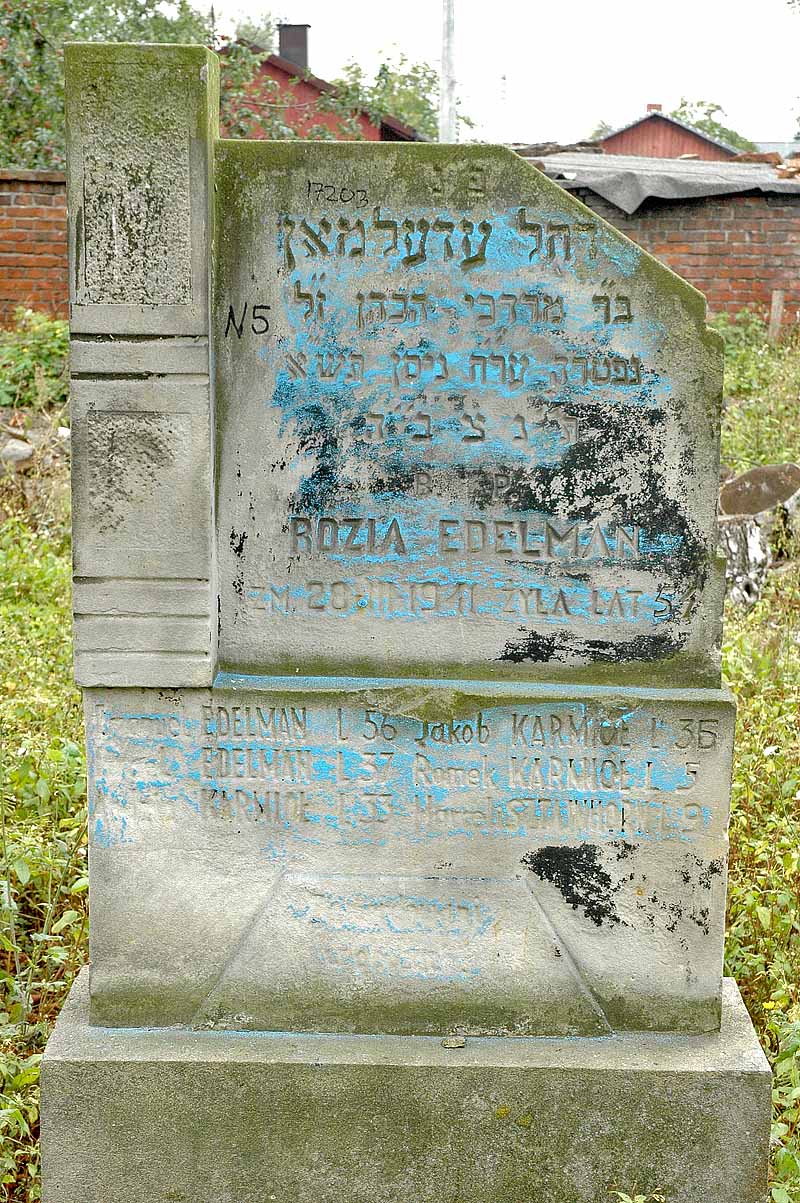 פ נ
17203
רחל עדעלמאן
N5
ב"ר מרדכי הכהן ז"ל
נפטרה ער"ח ניסן תש"א
ת נ צ ב ה
B P
ROZIA EDELMAN
ZM. 28-III-1941 ŻYŁA LAT 51
EDELMAN L 56 Jakob KARMIOŁ L 35
EDELMAN L 37 Romek KARMIOŁ L 5
KARMIOŁ L 33 L 9